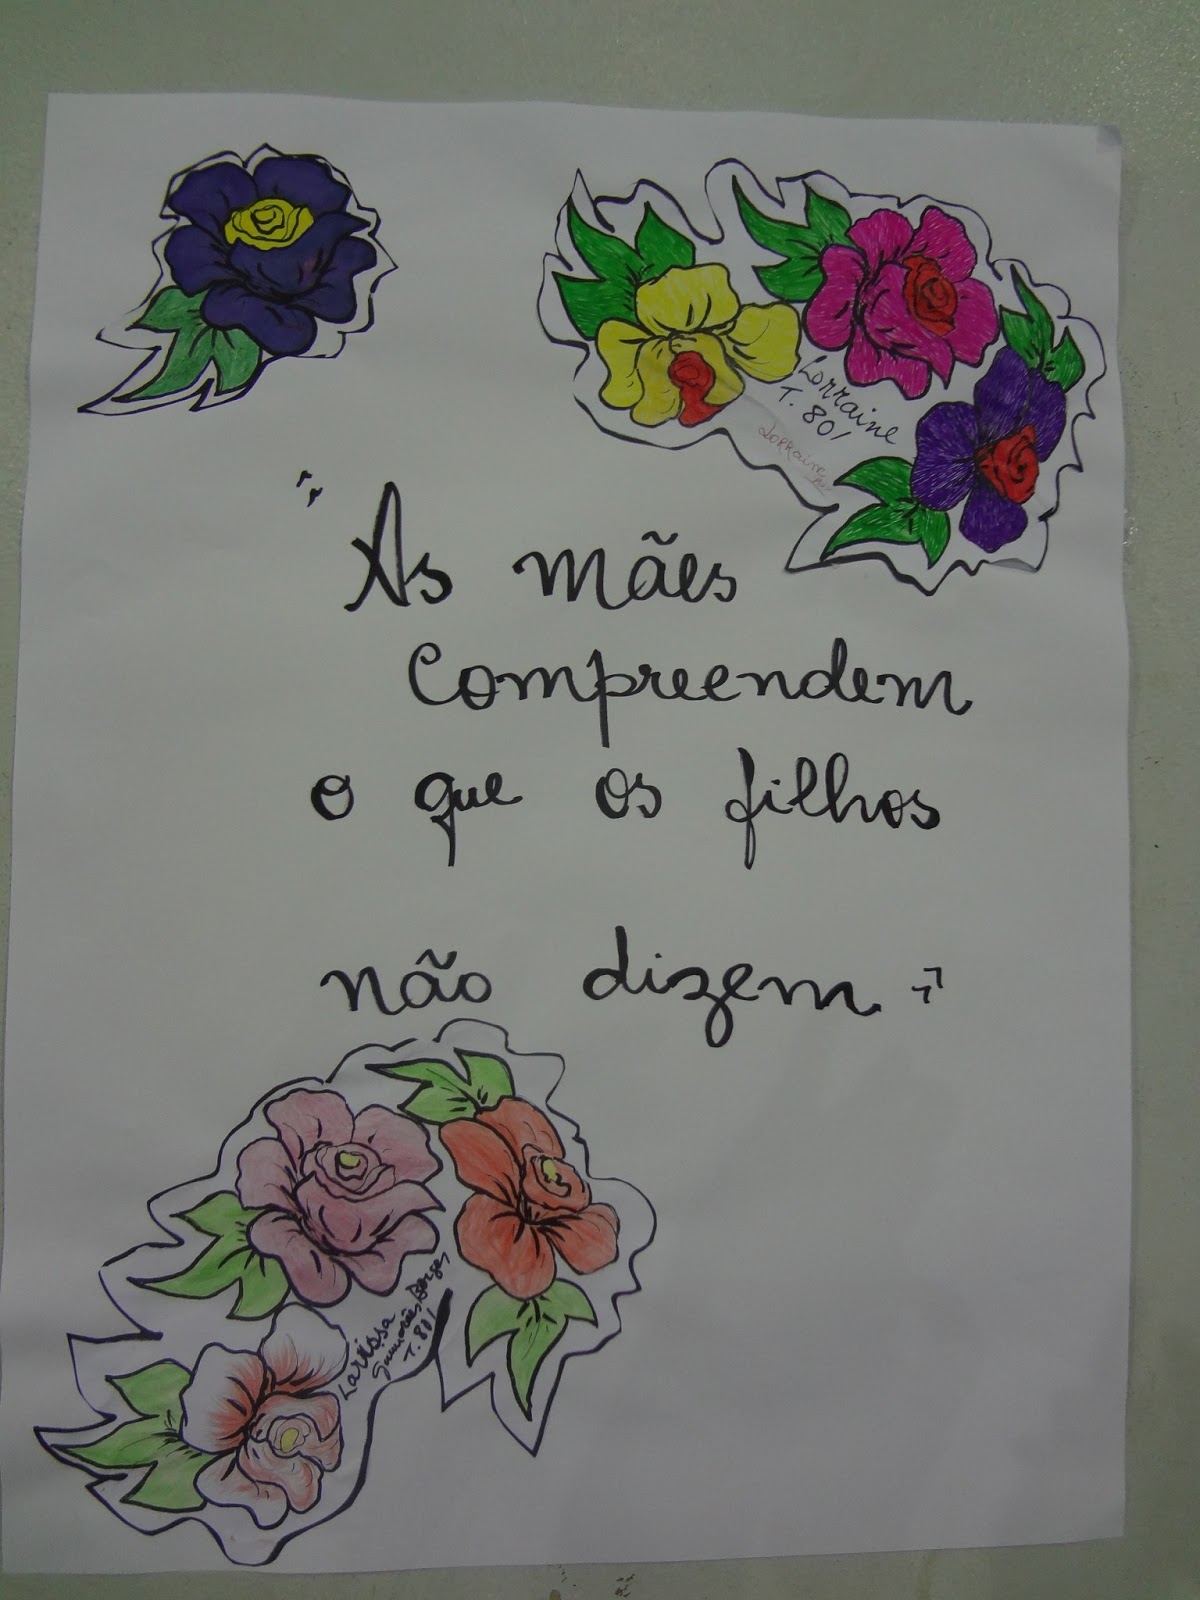 Lorraine
T. 801
Lorraine
"As mães
Compreendem
o que os filhos
não dizem"
Larissa
Guimarães Borges
T. 801